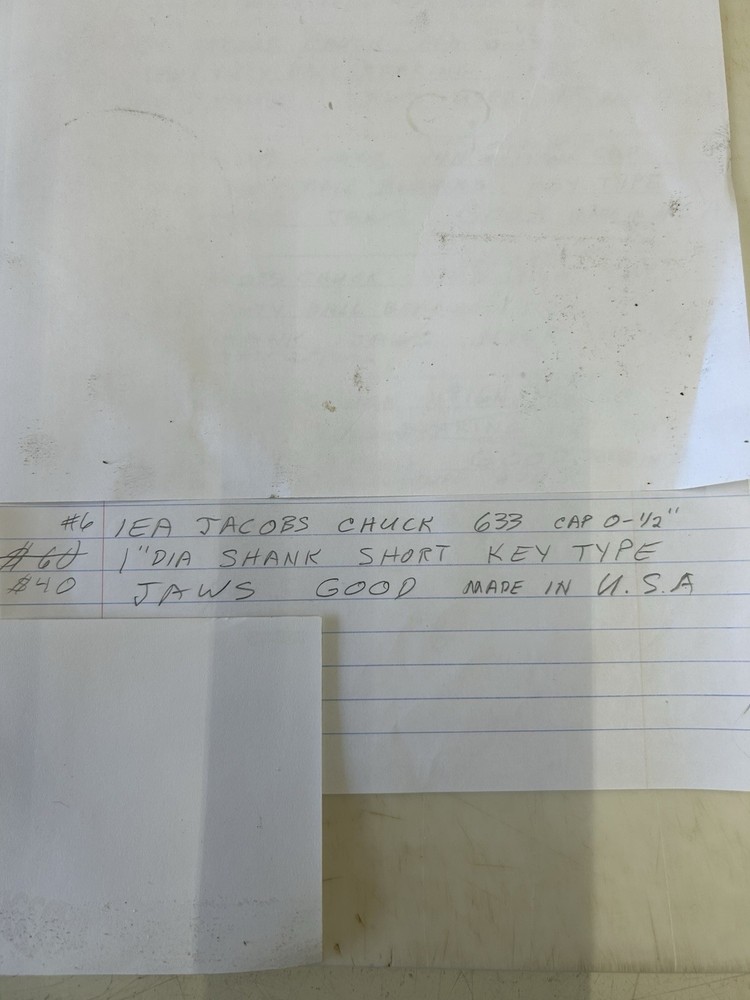 #6 1EA JACOBS CHUCK 633 CAP 0-1/2"
$60 1"DIA SHANK SHORT KEY TYPE
$40 JAWS GOOD MADE IN U.S.A